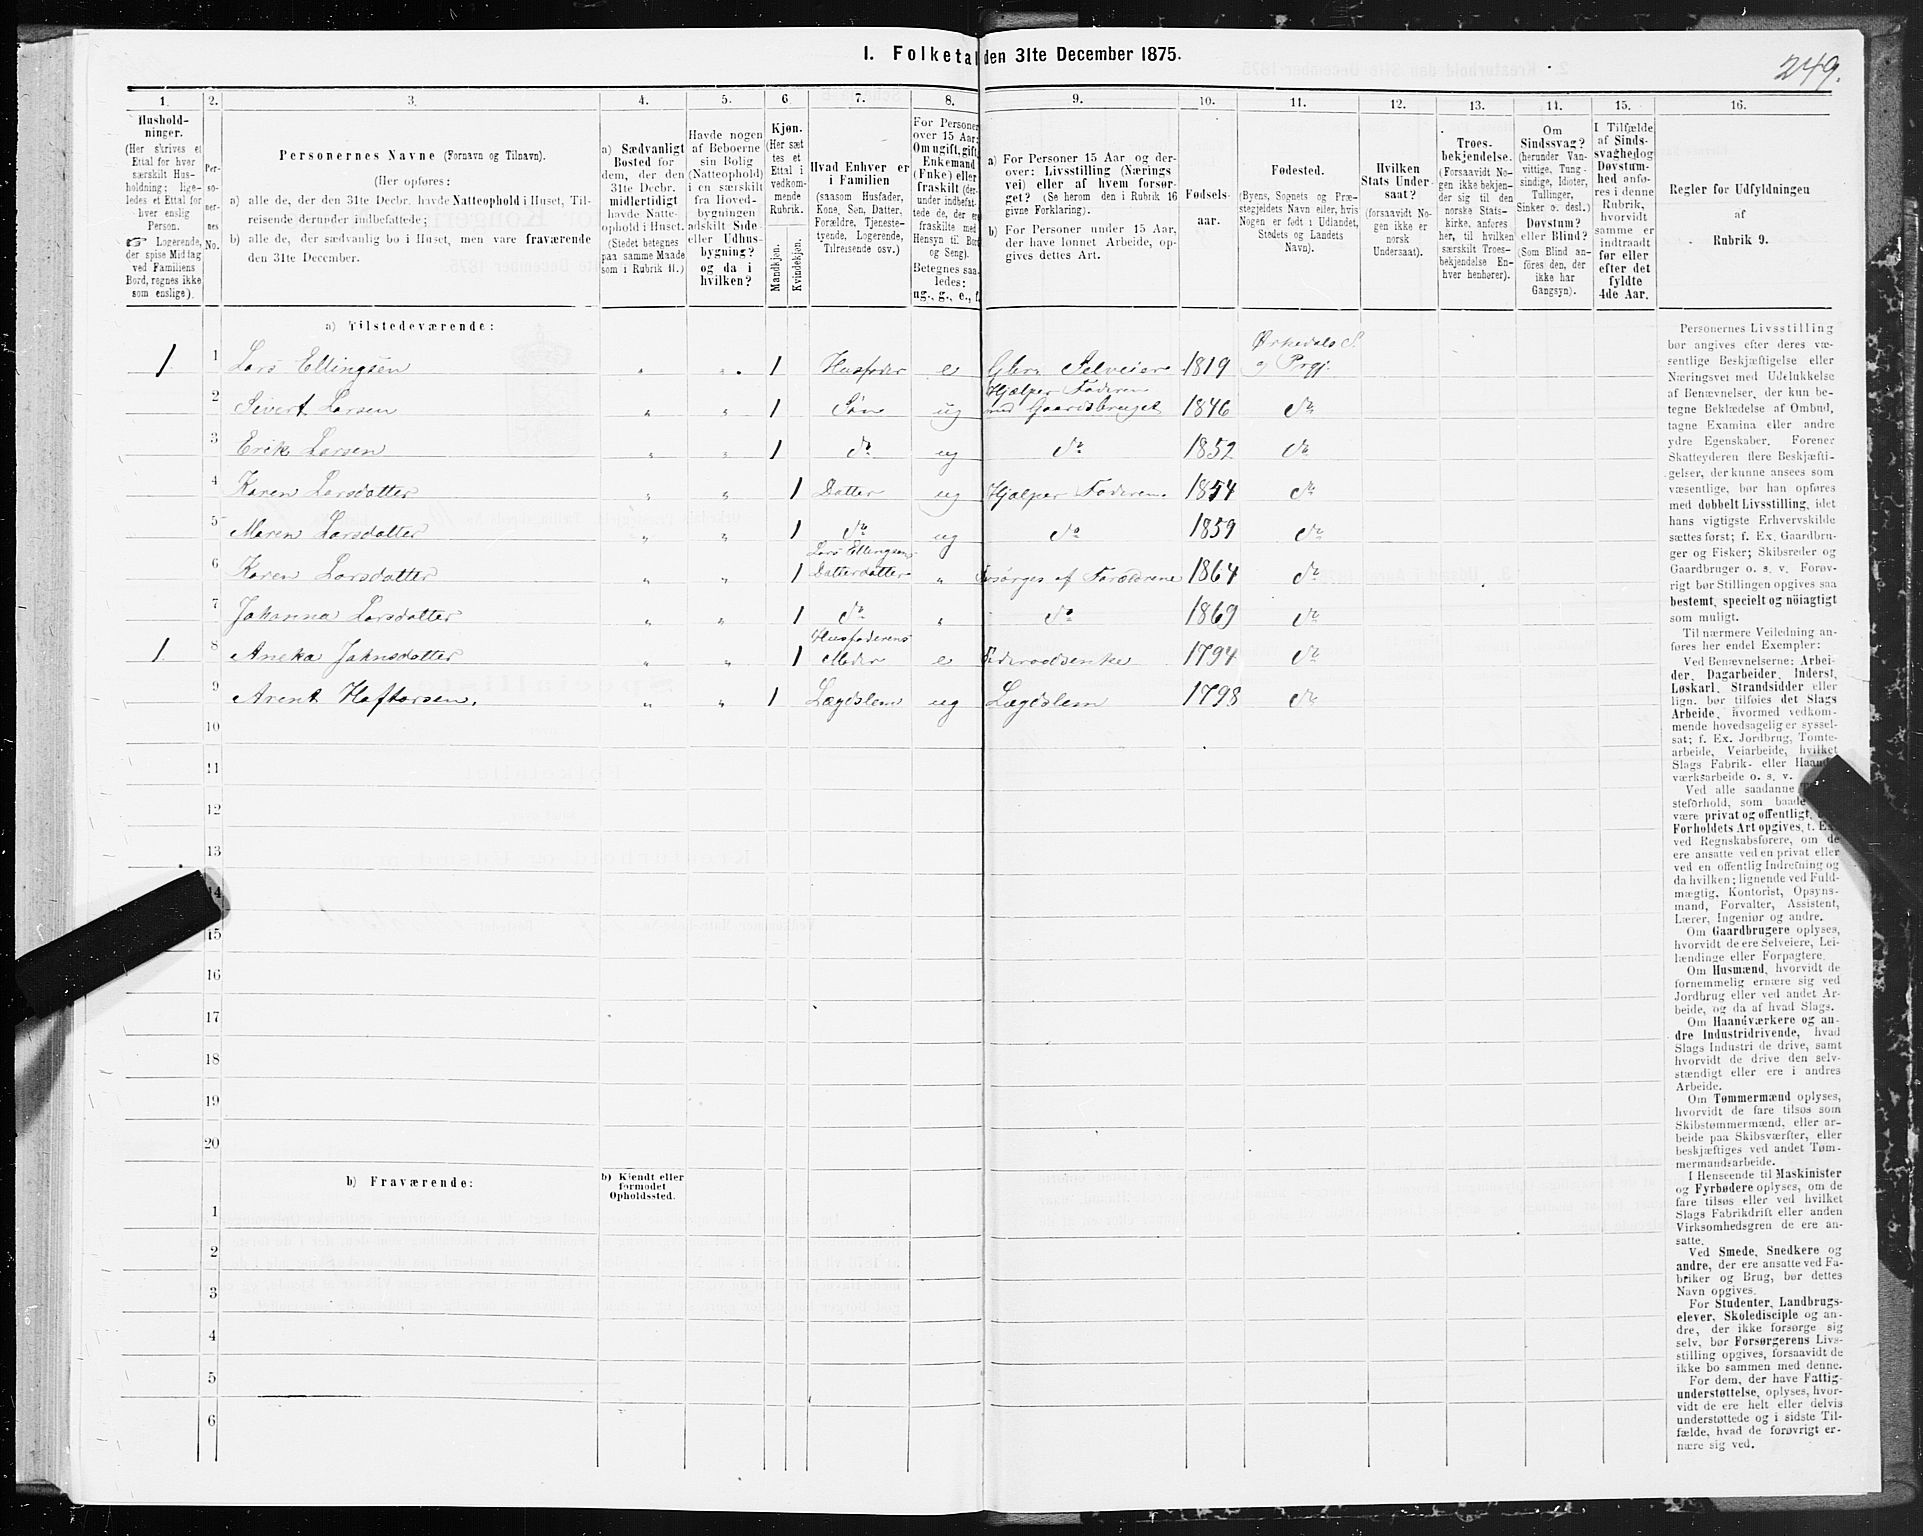 I. Folketal den 31te December 1875.
249.
1. 2. 3. 4. 5. 6 7. 8. 9. 10. 11. 12. 13. 14. 15. 16.
Hushold-
ninger.
(Her skrives et
Ettal for hver
særskilt Hus-
holdning; lige-
ledes et Ettal for
hver enslig
Person.
☞ Logerende,
der spise Middag
ved Familiens
Bord, regnes ikke
som enslige).
Per-
so-
ner-
nes
No.
Personernes Navne (Fornavn og Tilnavn).
(Her opføres:
a) alle de, der den 31te Decbr. havde Natteophold i Huset, Til-
reisende derunder indbefattede;
b) alle de, der sædvanlig bo i Huset, men vare fraværende
den 31te December.
a) Sædvanligt
Bosted for
dem, der den
31te Decbr.
midlertidigt
havde Natte-
ophold i Huset.
(Stedet betegnes
paa samme Maade
som i Rubrik 11.)
Havde nogen
af Beboerne
sin Bolig
(Natteophold)
i en særskilt
fra Hoved-
bygningen
adskilt Side-
eller Udhus-
bygning?
og da i
hvilken?
Kjøn.
(Her sæt
tes et
Ettal i
vedkom-
mende
Rubrik.
Mandkjøn.
Kvindekjøn.
Hvad Enhver er
i Familien
(saasom Husfader,
Kone, Søn, Datter,
Forældre, Tjeneste-
tyende, Logerende,
Tilreisende osv.)
For Personer
over 15 Aar:
Om ugift, gift,
Enkemand
(Enke) eller
fraskilt (der-
under indbefat-
tede de, der er
fraskilte med
Hensyn til Bord
og Seng).
Betegnes saa-
ledes:
ug., g., e., f.
a) For Personer 15 Aar og der-
over: Livsstilling (Nærings
vei) eller af hvem forsør-
get? (Se herom den i Rubrik 16
givne Forklaring).
b) For Personer under 15 Aar,
der have lønnet Arbeide, op-
gives dettes Art.
Fødsels-
aar.
Fødested.
(Byens, Sognets og Præ-
stegjeldets Navn eller, hvis
Nogen er født i Udlandet,
Stedets og Landets
Navn).
Hvilken
Stats Under-
saat?
(forsaavidt No-
gen ikke er
norsk
Undersaat).
Troes-
bekjendelse.
(Forsaavidt No-
gen ikke bekjen-
der sig til den
norske Stats-
kirke, anføres
her, til hvilken
særskilt Troes-
bekjendelse En-
hver henhører).
Om
Sindssvag?
(herunder Van-
vittige, Tung-
sindige, Idioter,
Tullinger,
Sinker o. desl.)
Døvstum?
eller Blind?
(Som Blind an-
føres den, der
ikke har
Gangsyn).
I Tilfælde
af Sinds-
svaghed og
Døvstum-
hed anfø-
res i denne
Rubrik,
hvorvidt
samme er
indtraadt
før eller
efter det
fyldte
4de Aar.
Regler for Udfyldningen
af
Rubrik 9.
a) Tilstedeværende:
1 1 Lars Ellingsen " " 1 Husfader e Gbr. Selveier 1819 Ørkedals S. og Prgj.
2 Sivert Larsen " " 1 Søn ug Hjælper Faderen med Gaardsbruget 1846 do
3 Erik Larsen " " 1 do ug do 1852 do
4 Karen Larsdatter " " 1 Datter ug Hjælper Faderen. 1854 do
5 Maren Larsdatter " " 1 do ug do 1859 do
6 Karen Larsdatter " " 1 Lars Ellingsens Datterdatter " Forsørges af Forældrene 1864 do
7 Johanna Larsdatter " " 1 do " do 1869 do
1 8 Aneka Johnsdatter " " 1 Husfaderens Moder e Føderaadsenke 1794 do
9 Arent Haftorsen. " " 1 Lægdslem ug Lægdslem 1798 do
10
11
12
13
14
15
16
17
18
19
20
b) Fraværende:
b) Kjendt eller
formodet
Opholdssted.
1
2
3
4
5
6
Personernes Livsstilling
bør angives efter deres væ-
sentlige Beskjæftigelse eller
Næringsvei med Udelukkelse
af Benævnelser, der kun be-
tegne Beklædelse af Ombud,
tagne Examina eller andre
ydre Egenskaber. Forener
Skatteyderen flere Beskjæfti-
gelser, der kunne ansees som
væsentlige, bør han opføres
med dobbelt Livsstilling, idet
hans vigtigste Erhvervskilde
sættes først; f. Ex. Gaardbru-
ger og Fisker; Skibsreder og
Gaardbruger o. s. v. Forøv-
rigt bør Stillingen opgives saa
bestemt, specielt og nöiagtigt
som muligt.
Til nærmere Veiledning an-
føres her endel Exempler:
Ved Benævnelserne: Arbei-
der, Dagarbeider, Inderst,
Løskarl, Strandsidder eller
lign. bør tilføies det Slags
Arbeide, hvormed vedkom-
mende hovedsagelig er syssel-
sat; f. Ex. Jordbrug, Tomte-
arbeide, Veiarbeide, hvilket
Slags Fabrik- eller Haand-
værksarbeide o. s. v.
Ved alle saadanne
steforhold, som baade
være privat og offentligt,
Forholdets Art opgives, t. Ex.
ved Regnskabsførere, om de
ere ansatte ved en privat eller
ved en offentlig Indretning og
da hvilken; lignende ved Fuld-
mægtig, Kontorist, Opsyns-
mand, Forvalter, Assistent,
Lærer, Ingeniør og andre.
Om Gaardbrugere oplyses,
hvorvidt de ere Selveiere, Lei-
lændinge eller Forpagtere.
Om Husmænd, hvorvidt de
fornemmelig ernære sig ved
Jordbrug eller ved andet Ar-
beide, og da af hvad Slags.
Om Haandværkere og an-
dre Industridrivende, hvad
Slags Industri de drive, samt
hvorvidt de drive den selv-
stændigt eller ere i andres
Arbeide.
Om Tømmermænd oplyses,
hvorvidt de fare tilsøs som
Skibstømmermænd, eller ar-
beide paa Skibsværfter, eller
beskjæftiges ved andet Tøm-
mermandsarbeide.
I Henseende til Maskinister
og Fyrbødere oplyses, om de
fare tilsøs eller ved hvilket
Slags Fabrikdrift eller anden
Virksomhedsgren de ere an-
satte.
Ved Smede, Snedkere og
andre, der ere ansatte ved Fa-
briker og Brug, bør dettes
Navn opgives.
For Studenter, Landbrugs-
elever, Skoledisciple og an-
dre, der ikke forsørge sig
selv, bør Forsørgerens Livs-
stilling opgives, forsaavidt de
ikke bo sammen med denne.
For dem, der have Fattig-
understøttelse, oplyses, hvor-
vidt de ere helt eller delvis
understøttede og i sidste Til-
fælde, hvad de forøvrigt er-
nære sig ved.